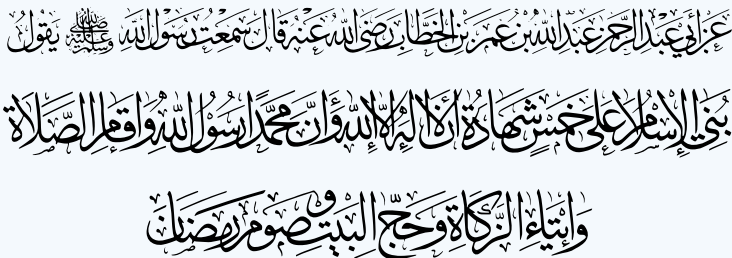 عن أبي عبد الرحمن عبد الله بن عمر بن الخطاب رضي الله عنه قال سمعت رسول الله ﷺ يقول
بُنِيَ الْإِسْلَامُ عَلَى خَمْسٍ شَهَادَةُ أَنْ لَا إِلَهَ إِلَّا اللَّهُ وَأَنَّ مُحَمَّدًا رَسُولُ اللَّهِ وَإِقَامِ الصَّلَاةِ
وَإِيتَاءِ الزَّكَاةِ وَحَجِّ الْبَيْتِ وَصَوْمِ رَمَضَانَ